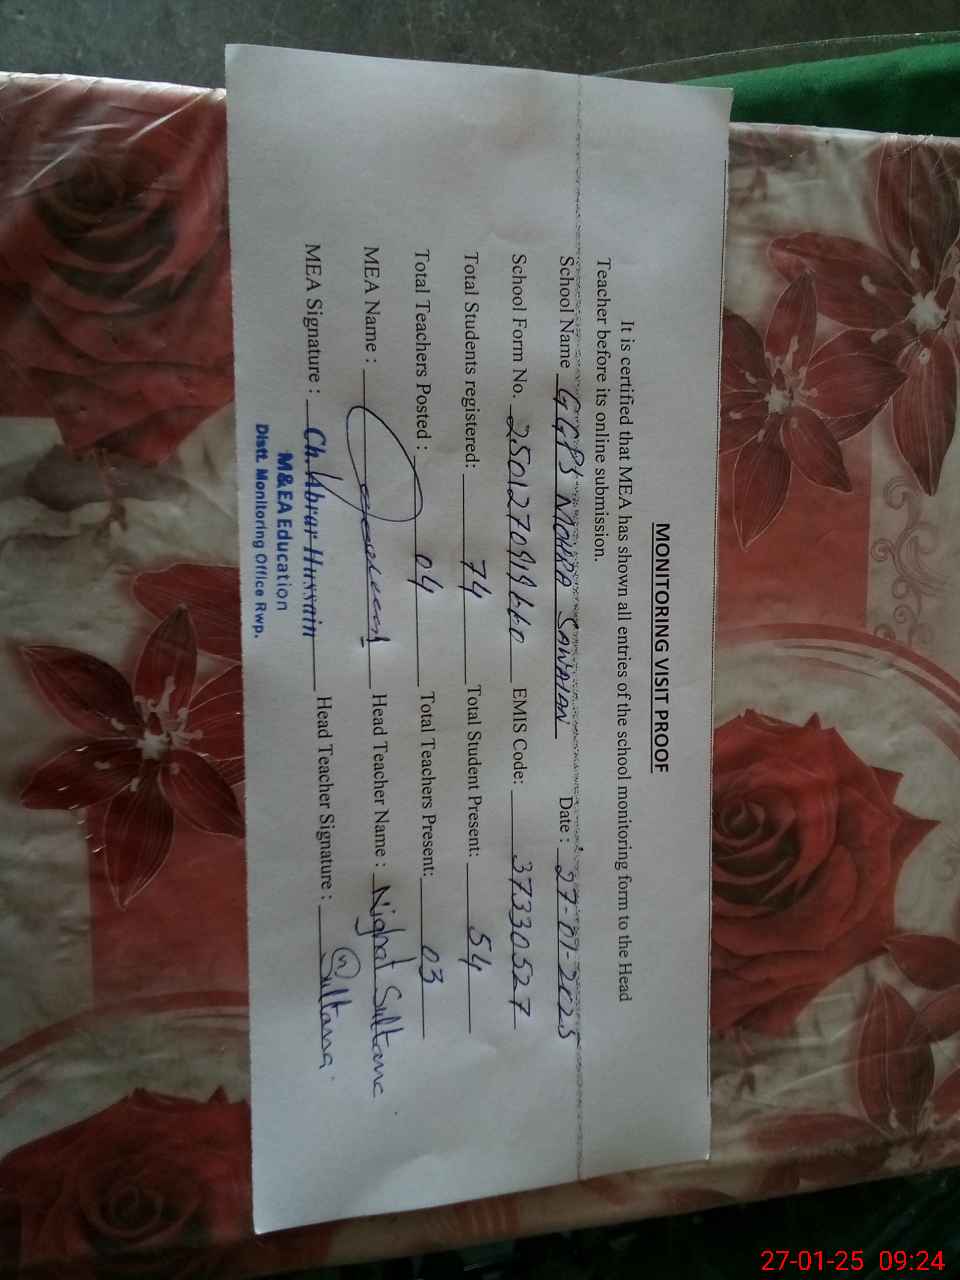 MONITORING VISIT PROOF
It is certified that MEA has shown all entries of the school monitoring form to the Head
Teacher before its online submission.
School Name GGPS MOHRA SAWAIAN Date : 27-01-2025
School Form No. EMIS Code: 37330527
Total Students registered: 74 Total Student Present: 54
Total Teachers Posted : 04 Total Teachers Present: 03
MEA Name : Head Teacher Name : Nighat Sultana
MEA Signature : Ch. Abrar Hussain Head Teacher Signature : Sultana
M&EA Education
Distt. Monitoring Office Rwp.
27-01-25 09:24